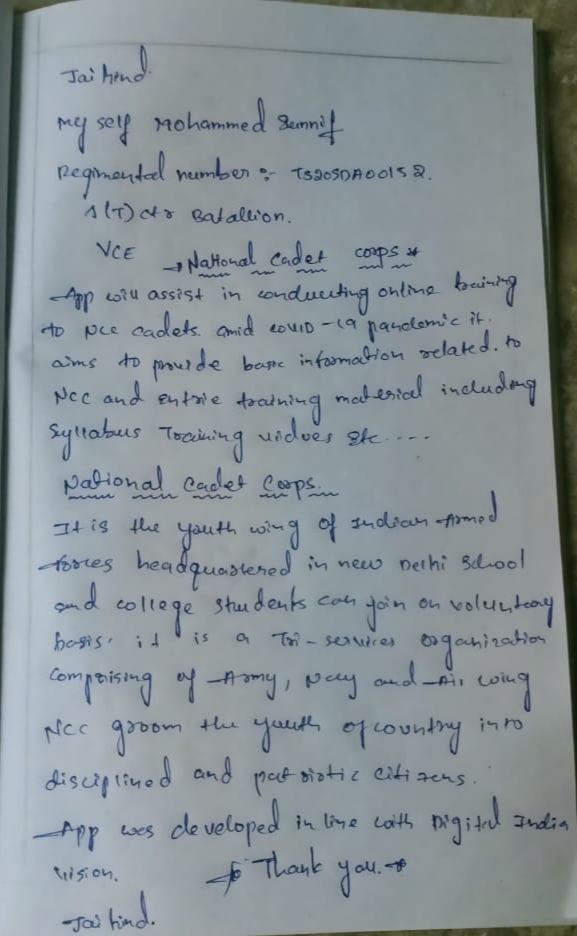 Jai hend.
My self Mohammed Sunnif
Regimental number :- TS20SDA00152.
1(T) ctr Batallion.
VCE → National Cadet corps *
App will assist in conducting online training
to Ncc cadets. amid COVID-19 pandemic it.
aims to provide basic information related. to
NCC and entrie training material including
Syllabus Training vidoes Etc....
National Cadet Corps.
It is the youth wing of Indian Armed
forces headquartered in new Delhi School
and college students can join on voluntary
basis. it is a Tri-services organization
Comprising of Army, Navy and Air wing
NCC groom the youth of country into
disciplined and patriotic citizens.
App was developed in line with Digital India
vision. Thank you.
Jai hind.